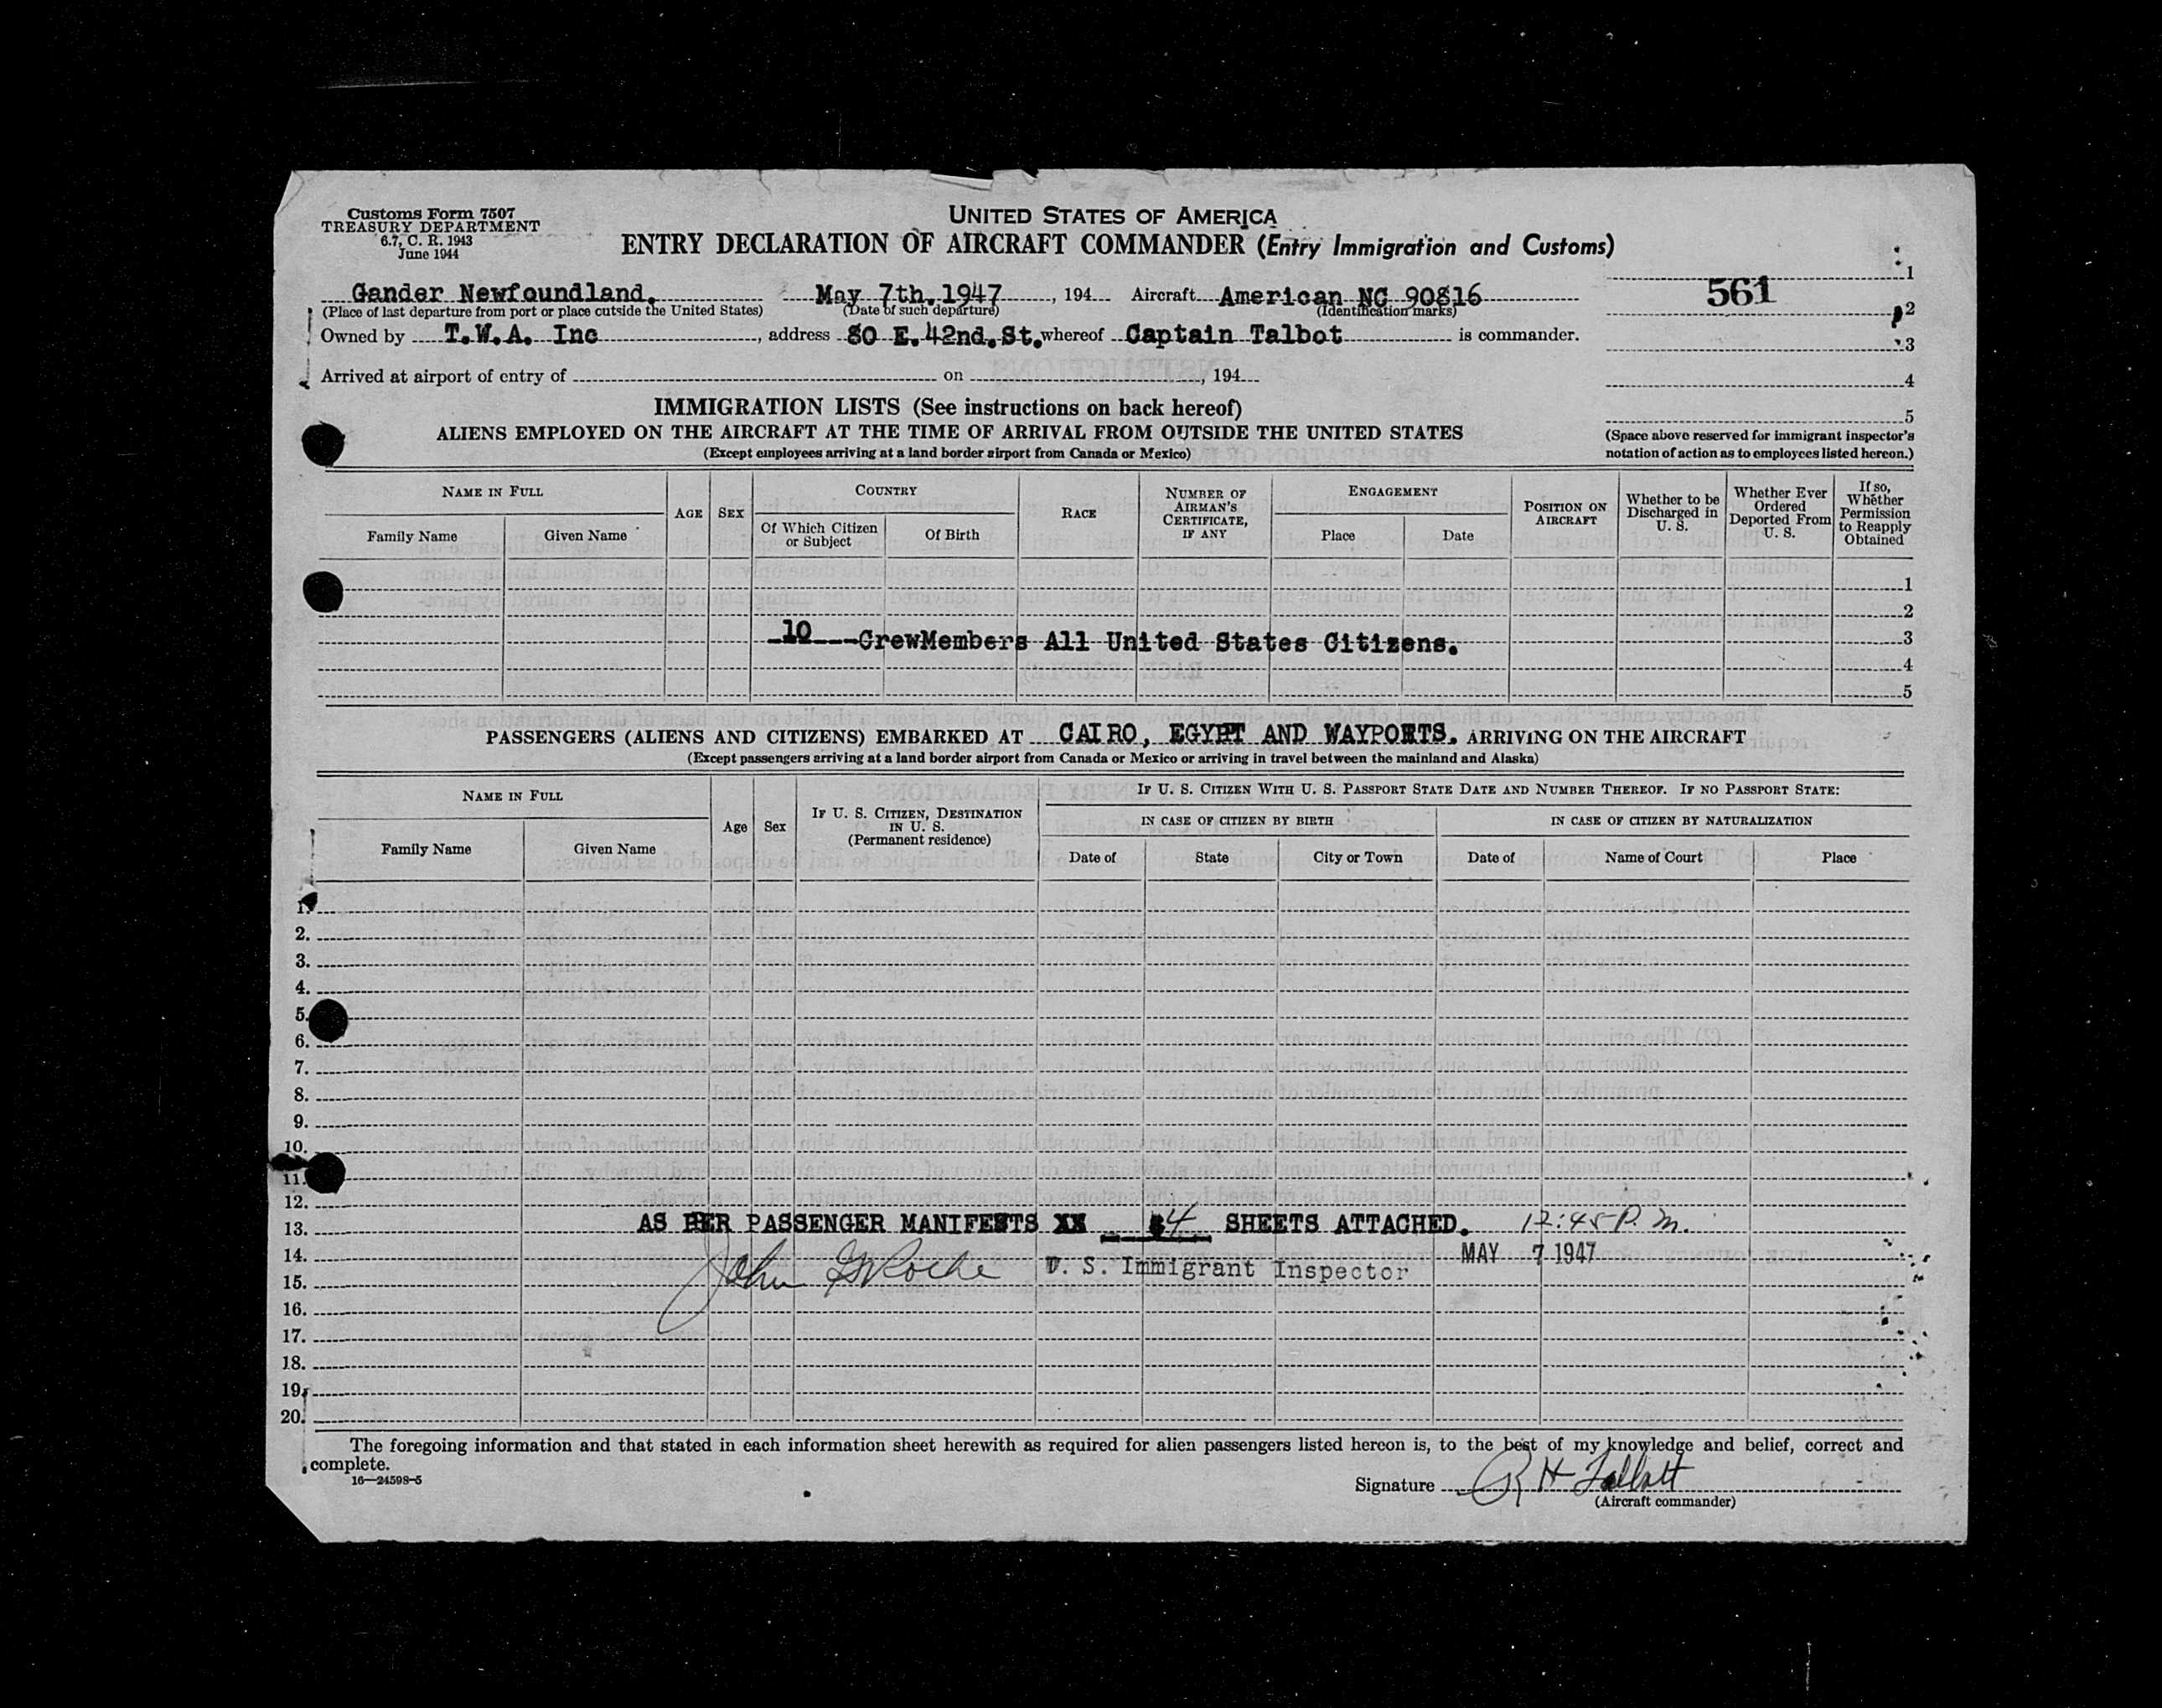 Customs Form 7507
TREASURY DEPARTMENT
6.7, C. R. 1943
June 1944
UNITED STATES OF AMERICA
ENTRY DECLARATION OF AIRCRAFT COMMANDER (Entry Immigration and Customs)
Gander Newfoundland. May 7th. 1947, 194 Aircraft American NC 90816
(Place of last departure from port or place outside the United States) (Date of such departure) (Identification marks)
Owned by T.W.A. Inc, address 80 E. 42nd. St. whereof Captain Talbot is commander.
Arrived at airport of entry of on , 194
561
1
2
3
4
5
(Space above reserved for immigrant inspector's
notation of action as to employees listed hereon.)
IMMIGRATION LISTS (See instructions on back hereof)
ALIENS EMPLOYED ON THE AIRCRAFT AT THE TIME OF ARRIVAL FROM OUTSIDE THE UNITED STATES
(Except employees arriving at a land border airport from Canada or Mexico)
NAME IN FULL
Family Name
Given Name
AGE
SEX
COUNTRY
Of Which Citizen
or Subject
Of Birth
RACE
NUMBER OF
AIRMAN'S
CERTIFICATE,
IF ANY
ENGAGEMENT
Place
Date
POSITION ON
AIRCRAFT
Whether to be
Discharged in
U. S.
Whether Ever
Ordered
Deported From
U. S.
If so,
Whether
Permission
to Reapply
Obtained
1
2
10 CrewMembers All United States Citizens. 3
4
5
PASSENGERS (ALIENS AND CITIZENS) EMBARKED AT CAIRO, EGYPT AND WAYPORTS. ARRIVING ON THE AIRCRAFT
(Except passengers arriving at a land border airport from Canada or Mexico or arriving in travel between the mainland and Alaska)
NAME IN FULL
Family Name
Given Name
Age
Sex
IF U. S. CITIZEN, DESTINATION
IN U. S.
(Permanent residence)
IF U. S. CITIZEN WITH U. S. PASSPORT STATE DATE AND NUMBER THEREOF. IF NO PASSPORT STATE:
IN CASE OF CITIZEN BY BIRTH
Date of
State
City or Town
IN CASE OF CITIZEN BY NATURALIZATION
Date of
Name of Court
Place
1.
2.
3.
4.
5.
6.
7.
8.
9.
10.
11.
12.
13. AS PER PASSENGER MANIFESTS XX 4 SHEETS ATTACHED. 12:45 P. M.
14. MAY 7 1947
John G Roche U. S. Immigrant Inspector
15.
16.
17.
18.
19.
20.
The foregoing information and that stated in each information sheet herewith as required for alien passengers listed hereon is, to the best of my knowledge and belief, correct and
complete.
16—24598-5
Signature R H Talbott
(Aircraft commander)